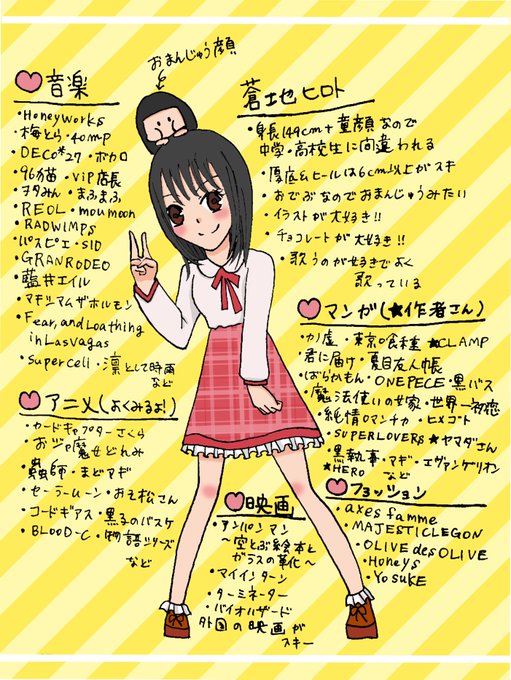 おまんじゅう顔
音楽
・HoneyWorks
・梅とら・40mP
・DECO*27・ボカロ
・96猫・VIP店長
・ヲタみん・まふまふ
・REOL・moumoon
・RADWIMPS
・パスピエ・SID
・GRANRODEO
・藍井エイル
・マキシマムザホルモン
・Fear,andLoathing
inLasVagas
・supercell・凛として時雨
など
蒼地ヒロト
・身長149cm+童顔なので
中学・高校生に間違われる
・厚底&ヒールは6cm以上がスキ
・おでぶなのでおまんじゅうみたい
・イラストが大好き!!
・チョコレートが大好き!!
・歌うのが好きでよく
歌っている
マンガ(★作者さん)
・カノ嘘・東京喰種★CLAMP
・君に届け・夏目友人帳
・ばらかもん・ONEPECE・黒バス
・魔法使いの嫁・世界一初恋
・純情ロマンチカ・ヒメゴト
・SUPERLOVERS★ヤマダさん
・黒執事・マギ・エヴァンゲリオン
★HERO など
アニメ(よくみるよ!)
・カードキャプターさくら
・おジャ魔女どれみ
・蟲師・まどマギ
・セーラームーン・おそ松さん
・コードギアス・黒子のバスケ
・BLOOD-C・物語シリーズ
など
映画
・アンパンマン
〜空とぶ絵本と
ガラスの靴〜
・マイインターン
・ターミネーター
・バイオハザード
外国の映画が
スキー
ファッション
・axes famme
・MAJESTICLEGON
・OLIVEdesOLIVE
・Honeys
・YosuKE